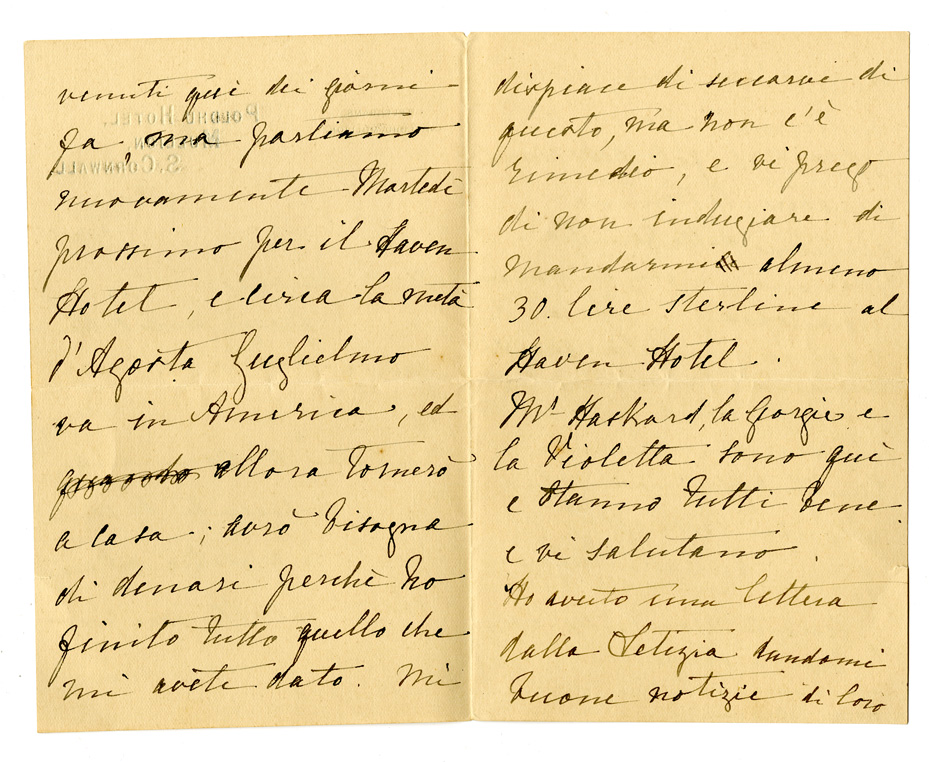 venuti quì dei giorni
fa, ma partiamo
nuovamente Martedì
prossimo per il Haven
Hotel, e circa la metà
d'Agosto Guglielmo
va in America, ed
quando allora tornerò
a casa; avrò bisogna
di denari perchè ho
finito tutto quello che
mi avete dato. Mi
POLDHU HOTEL,
MULLION
S. CORNWALL
dispiace di seccarvi di
questo, ma non c'è
rimedio, e vi prego
di non indugiare di
mandarmi almeno
30. lire sterline al
Haven Hotel.
Mr Haskard, la Gorgie e
la Violetta sono quì
e stanno tutti bene
e vi salutano.
Ho avuto una lettera
dalla Letizia dandomi
buone notizie di loro